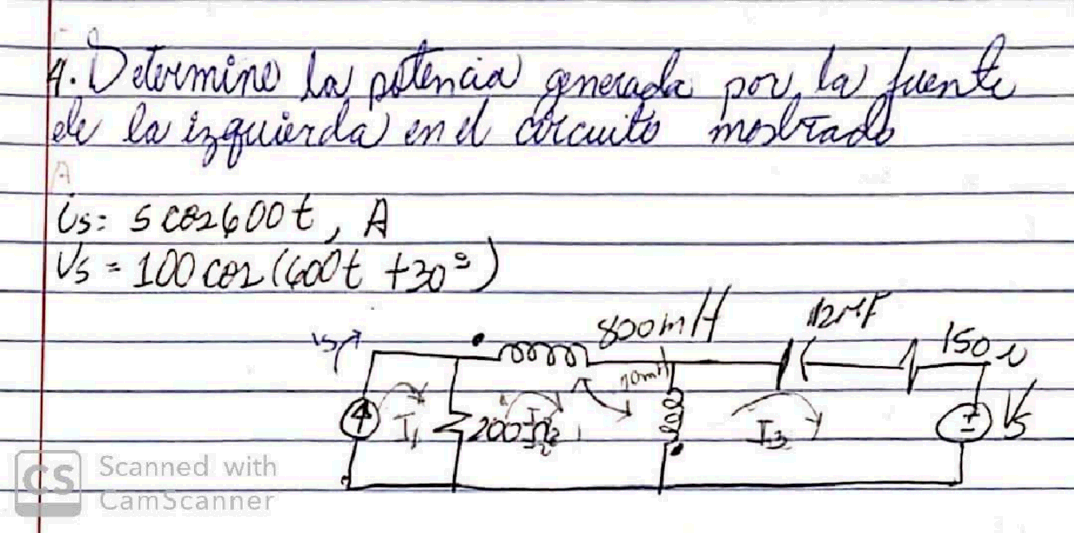 4. Determine la potencia generada por la fuente
de la izquierda en el circuito mostrado
is= 5 cos600t, A
Vs = 100 cos (600t +30°)
800mH
12μF
150Ω
is
I1
200Ω
I2
I3
Vs
CS Scanned with
CamScanner